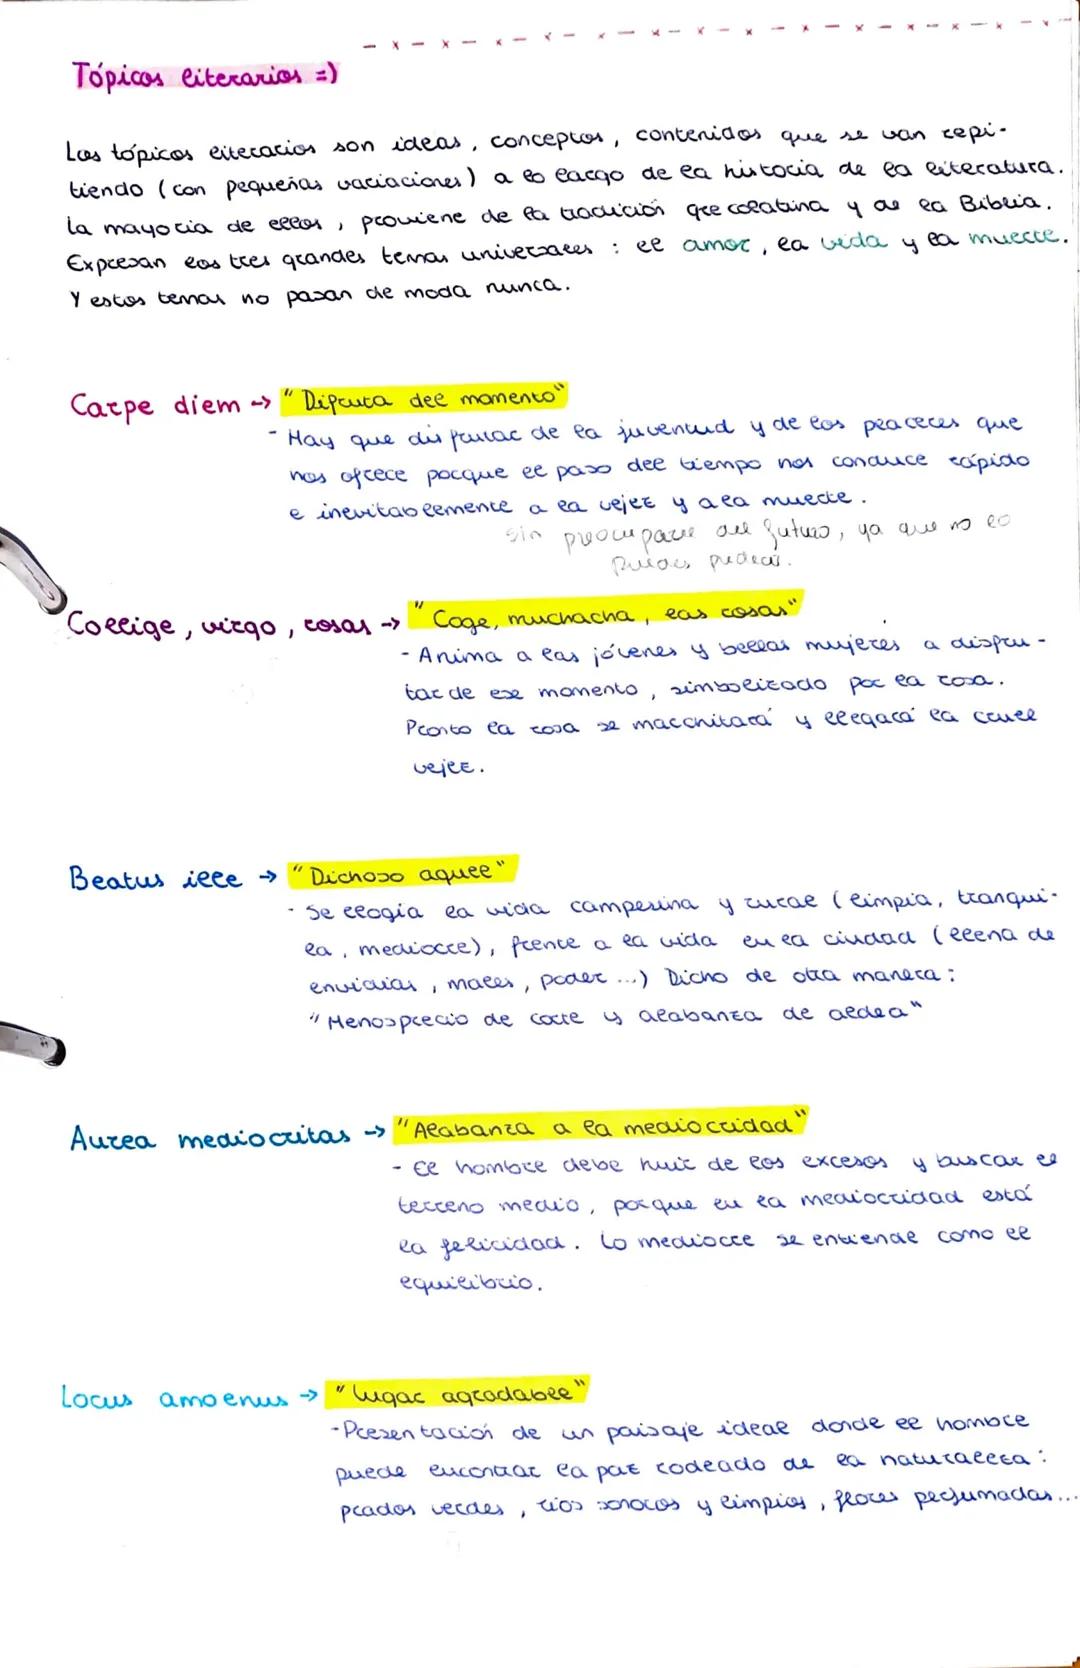 Tópicos literarios =)
Los tópicos literarios son ideas, conceptos, contenidos que se van repi-
tiendo (con pequeñas variaciones) a lo largo de la historia de la literatura.
La mayoria de ellos, proviene de la tradición grecolatina y de la Biblia.
Expresan los tres grandes temas universales : el amor, la vida y la muerte.
Y estos temas no pasan de moda nunca.
Carpe diem → "Disfruta del momento"
- Hay que disfrutar de la juventud y de los placeres que
nos ofrece porque el paso del tiempo nos conduce rápido
e inevitablemente a la vejez y a la muerte.
sin preocuparse del futuro, ya que no lo
puedes predecir.
Collige, virgo, rosas → "Coge, muchacha, las rosas"
- Anima a las jóvenes y bellas mujeres a disfru-
tar de ese momento, simbolizado por la rosa.
Pronto la rosa se marchitará y llegará la cruel
vejez.
Beatus ille → "Dichoso aquel"
- Se elogia la vida campesina y rural (limpia, tranqui-
la, mediocre), frente a la vida en la ciudad (llena de
envidias, males, poder ...) Dicho de otra manera:
"Menosprecio de corte y alabanza de aldea"
Aurea mediocritas → "Alabanza a la mediocridad"
- El hombre debe huir de los excesos y buscar el
terreno medio, porque en la mediocridad está
la felicidad. Lo mediocre se entiende como el
equilibrio.
Locus amoenus → "Lugar agradable"
- Presentación de un paisaje ideal donde el hombre
puede encontrar la paz rodeado de la naturaleza:
prados verdes, ríos sonoros y limpios, flores perfumadas...